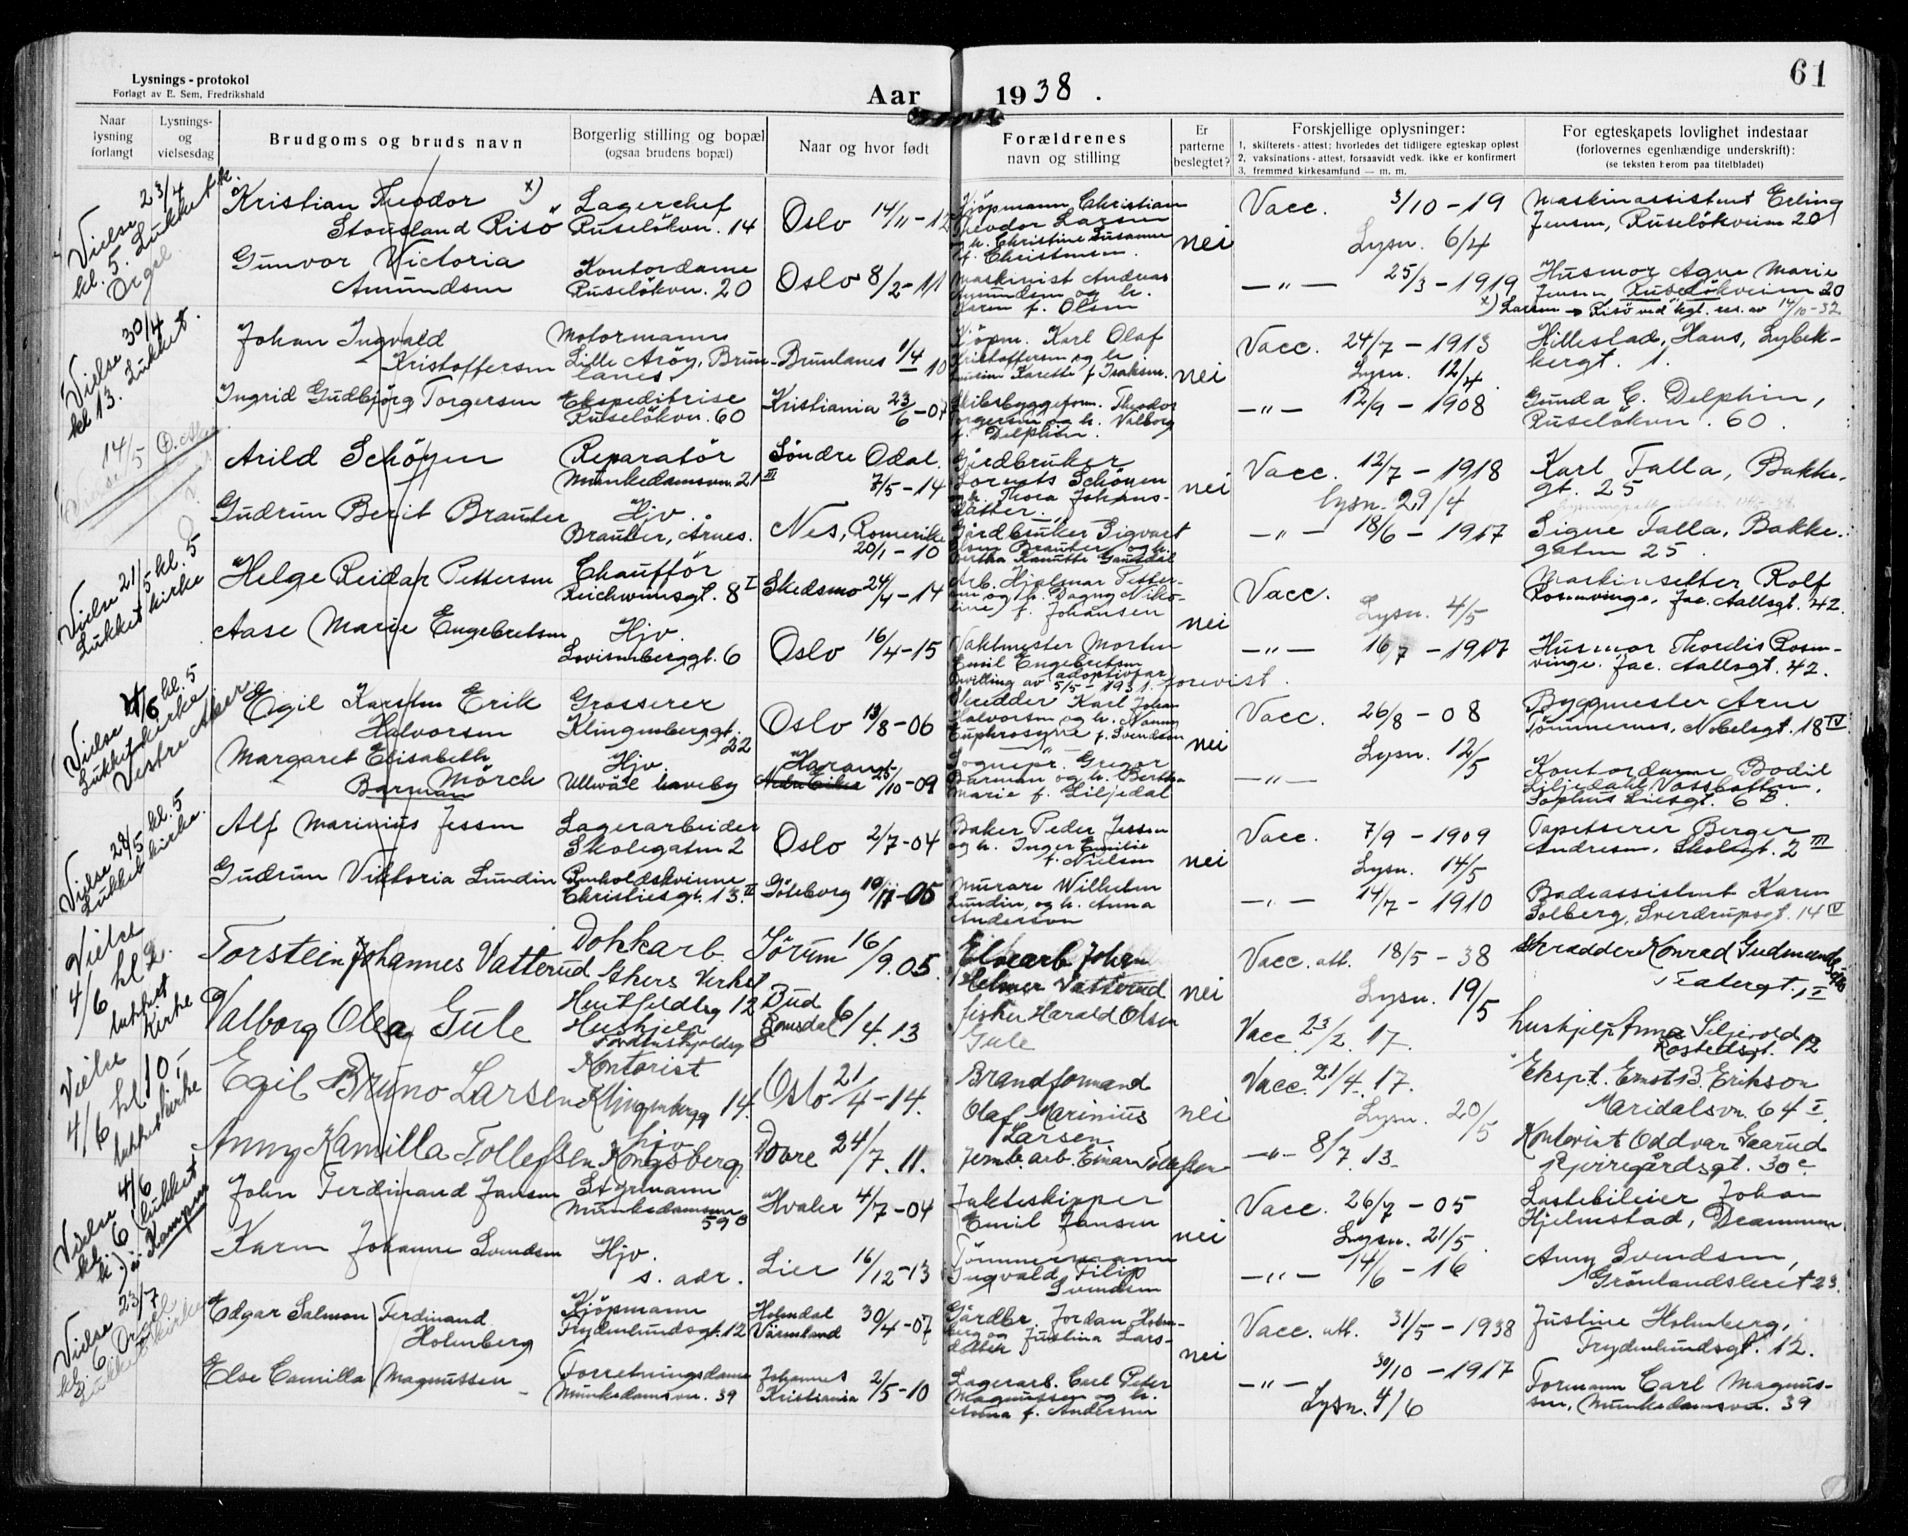 Lysnings-protokol
Forlagt av E. Sem, Fredrikshald
Aar 1938.
61
Naar lysning forlangt
Lysnings- og vielsesdag
Brudgoms og bruds navn
Borgerlig stilling og bopæl
(ogsaa brudens bopæl)
Naar og hvor født
Forældrenes
navn og stilling
Er parterne beslegtet?
Forskjellige oplysninger:
1, skifterets-attest; hvorledes det tidligere egteskap opløst
2, vaksinations-attest, forsaavidt vedk. ikke er konfirmert
3, fremmed kirkesamfund — m. m.
For egteskapets lovlighet indestaar
(forlovernes egenhændige underskrift):
(se teksten herom paa titelbladet)
Vielse 23/4
kl. 5. Lukket k.
Orgel.
Kristian Theodor x)
Stousland Risö
Lagerchef
Ruselökvn. 14
Oslo 14/11-12
Kjöpmann Christian
Theodor Larsen
og h. Christine Susanne
f. Christensen
nei
Vacc. 3/10-19
Lysn. 6/4
Maskinassistent Erling
Jensen, Ruselökveien 20
Gunvor Victoria
Amundsen
Kontordame
Ruselökvn. 20
Oslo 8/2-11
Maskinist Andreas
Amundsen og h.
Karen f. Olsen
—"— 25/3-1919
Husmor Agne Marie
Jensen Ruselökveien 20
x) Larsen → Risö ved kgl. res. av 14/10-32
Vielse 30/4
kl 13. Lukket.
Johan Ingvald
Kristoffersen
Motormann
Lille Aröy, Brun-
lanes
Brunlanes 1/4 10
Kjöpm. Karl Olaf
Kristoffersen og h.
Karette f. Isaksen.
nei
Vacc. 24/7-1913
Lysn. 12/4
Hillestad, Hans, Lybek-
kergt. 1.
Ingrid Gudbjörg Torgersen
Ekspeditrise
Ruselökvn. 60
Kristiania 23/6-07
Skibsbyggeform. Theodor
Torgersen og h. Valborg
f. Delphin.
—"— 12/9-1908
Gunda C. Delphin,
Ruselökvn. 60.
14/5
Arild Schöyen
Reparatör
Munkedamsvn. 21 III
Söndre Odal.
7/5-14
Gårdbruker
Schöyen
og h. Thora Johans-
datter.
nei
Vacc. 12/7-1918
Lysn. 29/4
Karl Falla, Bakke-
gt. 25
Gudrun Berit Brauter
Hjv.
Brauter, Årnes.
Nes, Romerike
20/1-10
Gårdbruker Sigvart
Olsen Brauter og h.
Bertha Kanutte Gausdal
—"— 18/6-1917
Signe Falla, Bakke-
gaten 25
Vielse 21/5 kl. 5
Lukket kirke
Helge Reidar Pettersen
Chauffför
Reichweinsgt. 8 I
Skedsmo 24/4-14
Arb. Hjalmar Petter-
sen og h. Dagny Niko-
line f. Johansen
nei
Vacc.
Lysn. 4/5
Maskinsetter Rolf
Rosenvinge, Jac. Aallsgt. 42.
Aase Marie Engebretsen
Hjv.
Lovisenberggt. 6
Oslo 16/4-15
Vaktmester Morten
Emil Engebretsen
adoptivfar
Bevilling av 5/5-1931. forevist.
—"— 16/7-1917
Husmor Thordis Rosen-
vinge. Jac. Aallsgt. 42.
Vielse 4/6 kl. 5
Lukket kirke
Vestre Aker
Egil Karsten Erik
Halvorsen
Grosserer
Klingenberggt.
22
Oslo 18/8-06
Skredder Karl Johan
Halvorsen og h. Nanny
Euphrosyne f. Svendsen
nei
Vacc. 26/8-08
Lysn. 12/5
Byggmester Arne
Tömmernes, Nobelsgt. 18 IV
Margaret Elisabeth
Barman Mörch
Hjv.
Ullevål haveby
Harand-
25/10-09
Sognepr. Gregor
Barman og h. Bertha
Marie f. Liljedal
—"—
Kontordame Bodil
Liljedahl Vossbotten,
Sophus Liesgt. 6 B.
Vielse 28/5 kl. 5
Lukket kirke.
Alf Marinius Jessen
Lagerarbeider
Skolegaten 2
Oslo 2/7-04
Baker Peder Jessen
og h. Inger Emilie
f. Nielsen
nei
Vacc. 7/9-1909
Lysn. 14/5
Tapetserer Berger
Andresen, Skolegt. 2 III
Gudrun Viktoria Lundin
Renholdskvinne
Christiesgt. 13 II
Göteborg 10/11-05
Murare Wilhelm
Lundin, og h. Anna
Anderson
—"— 14/7-1910
Badeassistent Karen
Solberg, Sverdrupsgt. 14 IV
Vielse
4/6 kl 2.
lukket
kirke
Torstein Johannes Vatterud
Dokkarb.
Akers Verkst
Huitfeldtsg 12
Sørum 16/9.05.
Elvearb. Johan
Helmer Vatterud
nei
Vacc. att. 18/5-38
Lysn. 19/5
Skrædder Konrad Gudmunds
Teatergt. 1 I
Valborg Olea Gule
Hushjelp
Tordenskjoldsg 8
Bud
Romsdal 6/4.13
fisker Harald Olsen
Gule
Vacc 23/2.17.
hushjelp Anna Seljevold
Rostedsgt. 12
Vielse
4/6 kl 10,-
lukket kirke
Egil Bruno Larsen
Kontorist
Klingenbergg 14.
Oslo 21/4-14.
Brandformand
Olaf Marinius
Larsen
nei
Vacc. 21/4.17.
Lysn. 20/5
Ekspt. Ernst B. Erikson
Maridalsvn. 64 I
Anny Kamilla Tollefsen
hjv
Kongsberg.
Dovre 24/7.11.
Jernb. arb. Einar Tollefsen
—"— 8/7.13-
Kontorist Oddvar Gaarud
Pjoiregårdsgt. 30 c
Vielse 4/6
kl. 6 (lukket
k.) i Kampen
John Ferdinand Jansen
Styrmann
Munkedamsvn
59 B
Hvaler 4/7-04
Jakteskipper
Emil Jansen
nei
Vacc. 26/7-05
Lysn. 21/5.
Lastebileier Johan
Hjelmestad, Drammen.
Karen Johanne Svendsen
Hjv.
s. adr.
Lier 16/12-13
Tömmermann
Ingvald Filip
Svendsen
—"— 14/6-16
Anny Svendsen,
Grönlandsleret 23.
Vielse 23/7
kl. 6. Orgel
Lukket kirke
Edgar Salmon Ferdinand
Holmberg
Kjöpmann
Frydenlundsgt. 12
Holmdal
Värmland 30/4-07
Gårdbr. Jordan Holm-
berg og Justina Lars-
datter
nei
Vacc. att. 31/5-1938
Justine Holmberg,
Frydenlundsgt. 12.
Else Camilla Magnussen
Forretningsdame
Munkedamsvn. 39
Johannes
Kristiania 2/5-10
Lagerarb. Carl Peter
Magnussen og h.
Anna f. Andersen
—"— 30/10-1917
Lysn. 4/6
Formann Carl Magnus-
sen, Munkedamsvn. 39